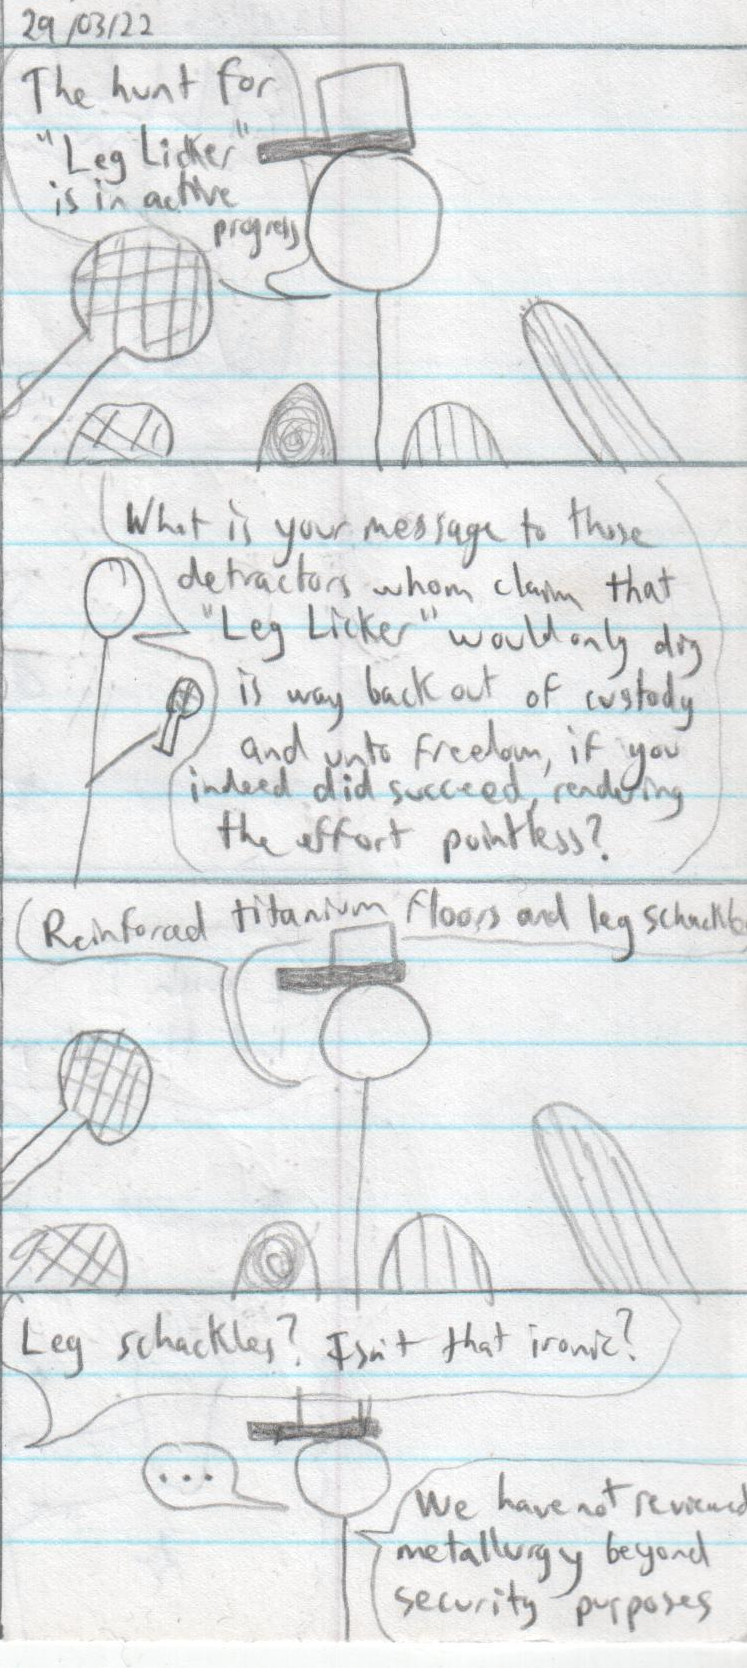 29/03/22
The hunt for
"Leg Licker"
is in active
progress
What is your message to those
detractors whom claim that
"Leg Licker" would only dig
is way back out of custody
and unto freedom, if you
indeed did succeed, rendering
the effort pointless?
Reinforced titanium floors and leg schackles
Leg schackles? Isn't that ironic?
...
We have not reviewed
metallurgy beyond
security purposes